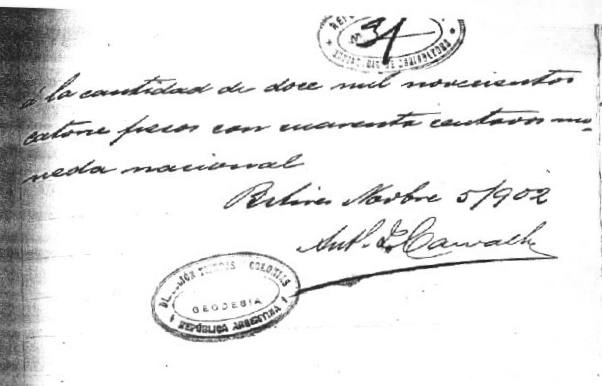 31
á la cantidad de doce mil novecientos
catorce pesos con cuarenta centavos mo-
neda nacional
Novbre 5/902
Carvalho
TIERRAS Y COLONIAS
GEODESIA
REPÚBLICA ARGENTINA